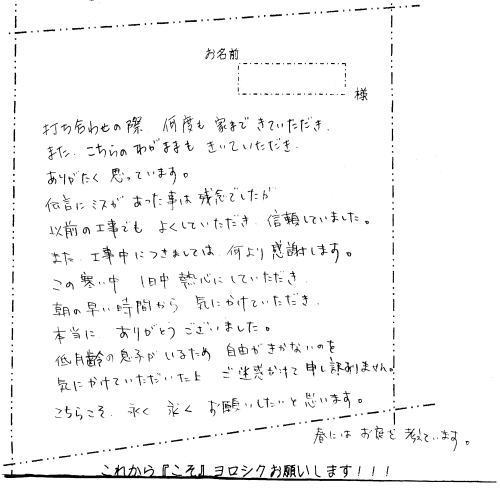 お名前
様
打ち合わせの際 何度も 家まで きていただき、
また、こちらのわがままも きいていただき、
ありがたく 思っています。
伝言にミスが あった事は 残念でしたが
以前の工事でも よくしていただき、信頼していました。
また、工事中につきましては、何より 感謝します。
この寒い中 1日中 熱心にしていただき、
朝の早い時間から 気にかけていただき、
本当に、ありがとうございました。
低月齢の息子がいるため 自由がきかないのを
気にかけていただいた上 ご迷惑かけて 申し訳ありません。
こちらこそ、永く 永く お願いしたいと思います。
春には お庭を 考えています。
これから『こそ』ヨロシクお願いします！！！